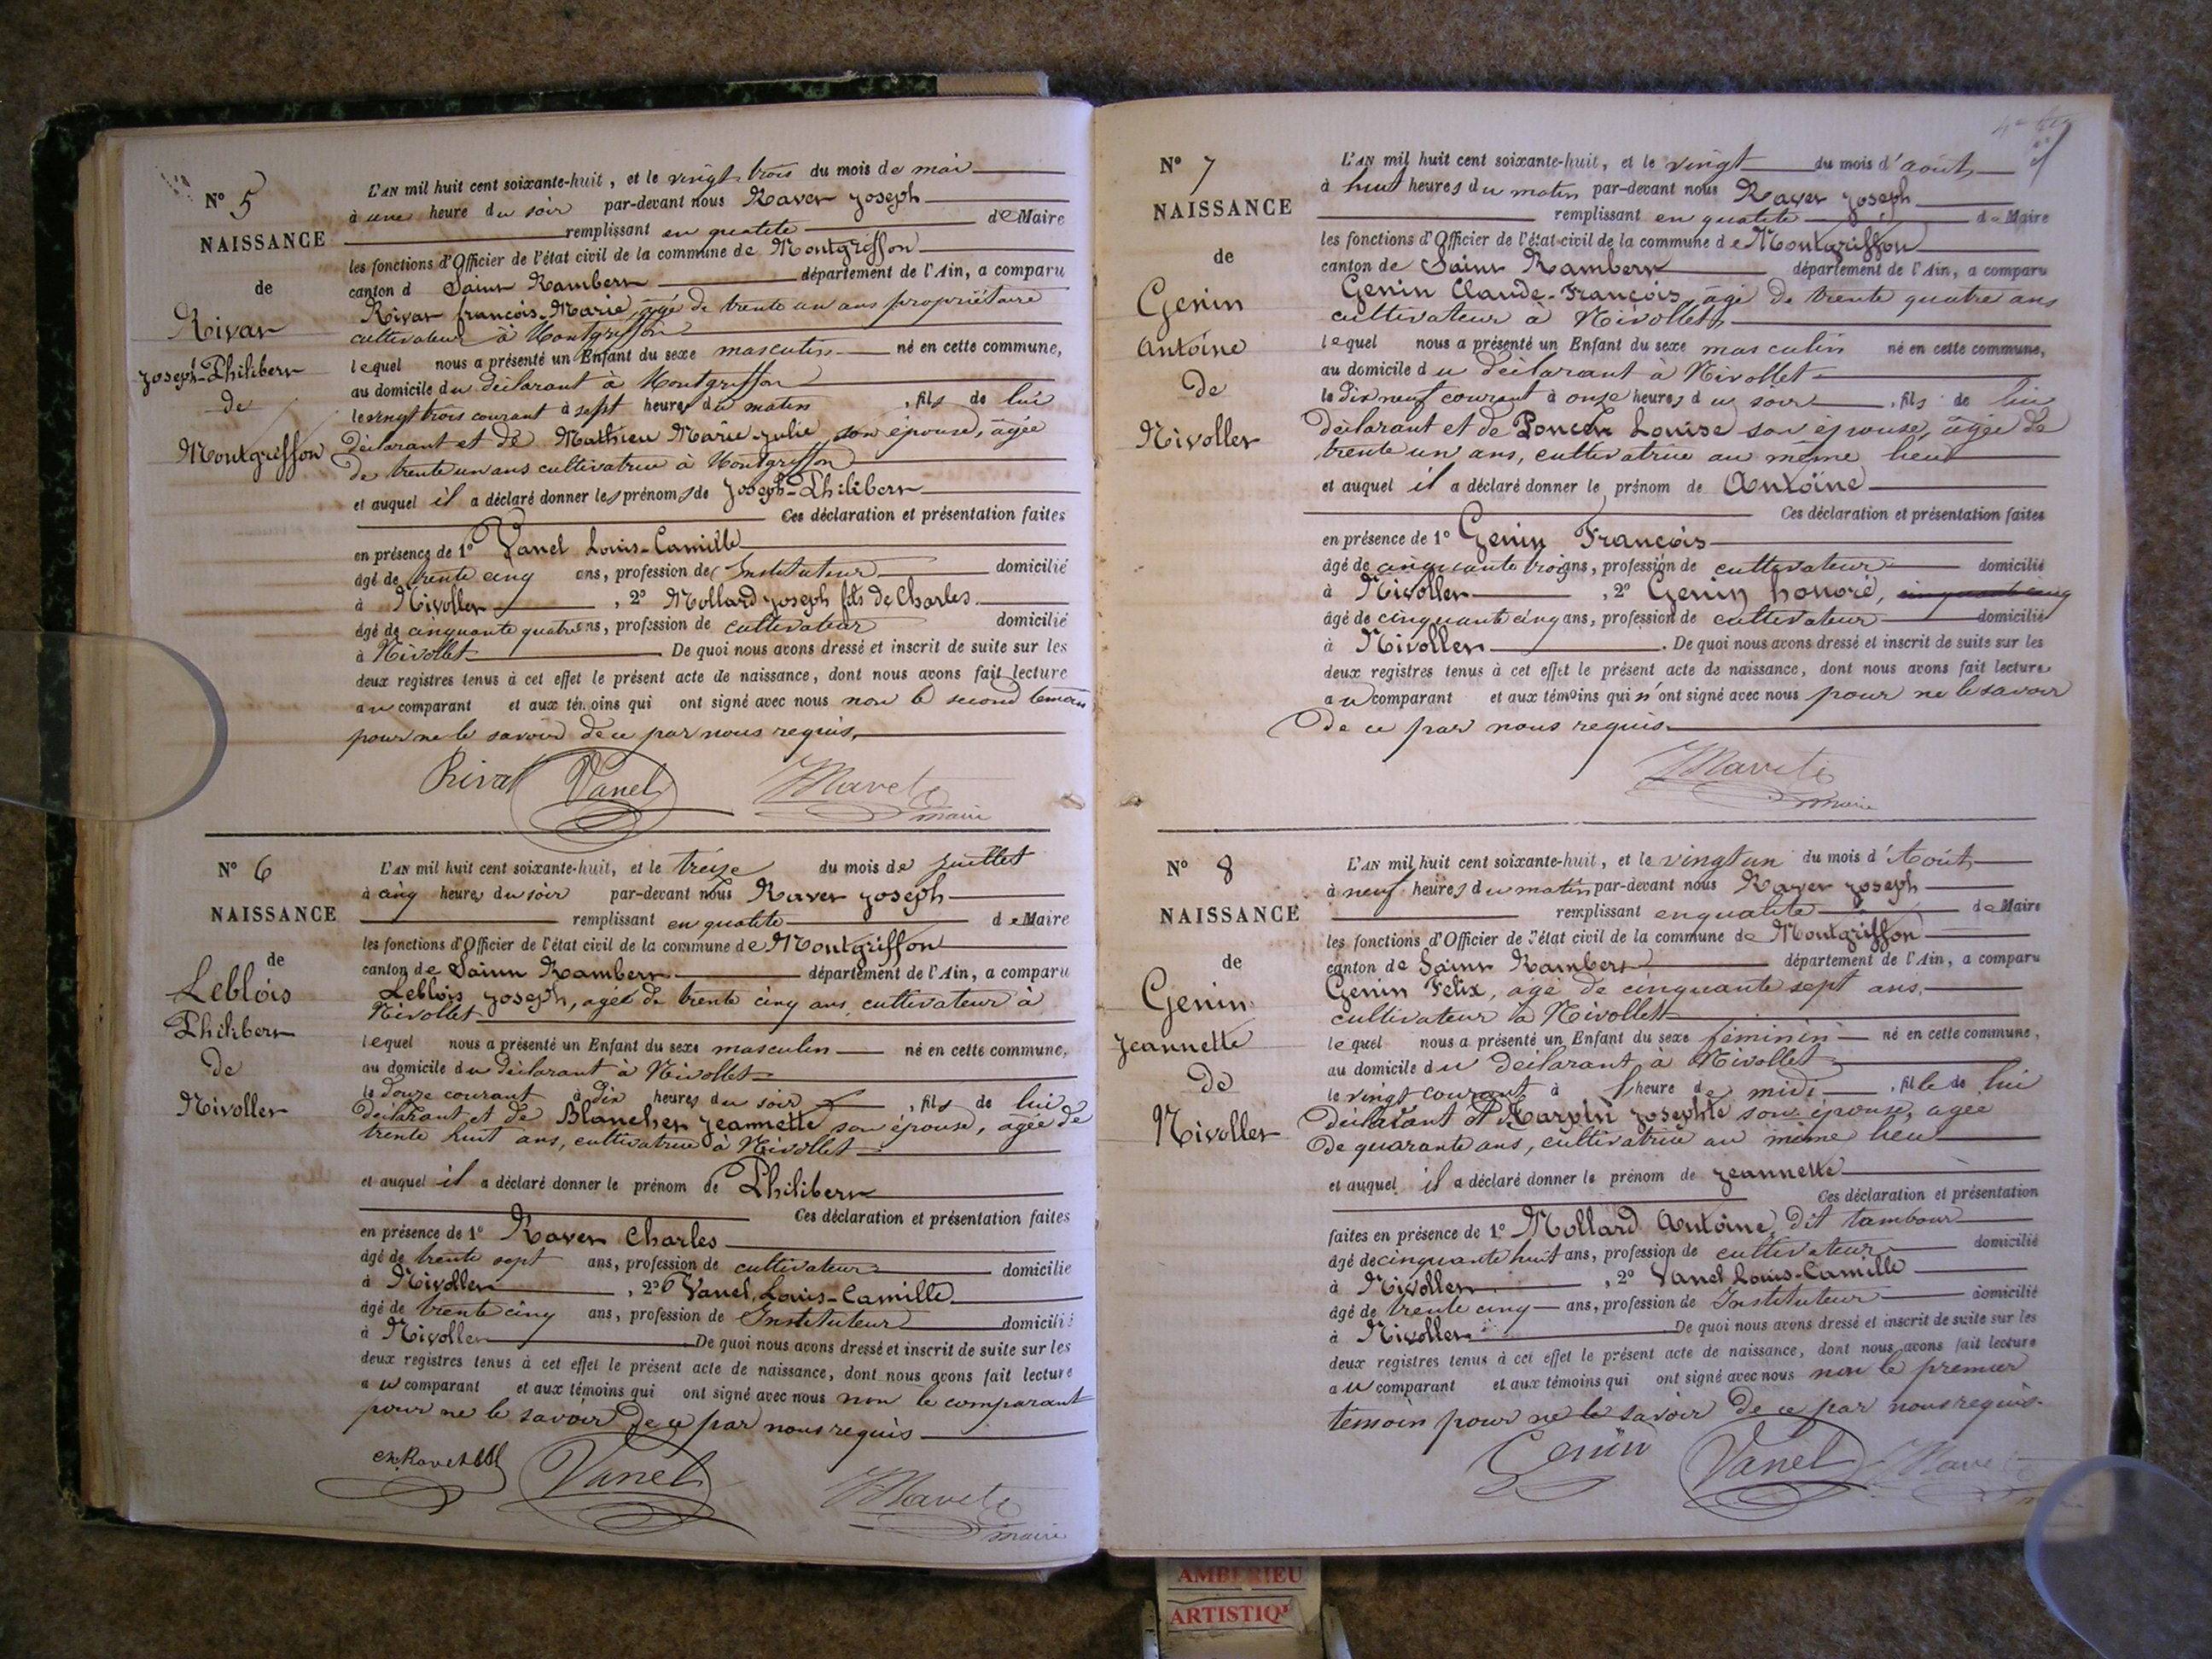 N° 5
NAISSANCE
de
Rivat
Joseph-Philibert
de
Montgriffon
L'AN mil huit cent soixante-huit, et le vingt trois du mois de mai
à une heure du soir par-devant nous Ravet Joseph
remplissant en qualité de Maire
les fonctions d'Officier de l'état civil de la commune de Montgriffon
canton d Saint Rambert département de l'Ain, a comparu
Rivat françois-Marie, âgé de trente un ans propriétaire
cultivateur à Montgriffon
lequel nous a présenté un Enfant du sexe masculin né en cette commune,
au domicile du déclarant à Montgriffon
le vingt trois courant à sept heures du matin, fils de lui
déclarant et de Mathieu Marie-Julie son épouse, âgée
de trente un ans cultivatrice à Montgriffon
et auquel il a déclaré donner les prénoms de Joseph-Philibert
Ces déclaration et présentation faites
en présence de 1° Vanel Louis-Camille
âgé de trente cinq ans, profession de Instituteur domicilié
à Nivollet, 2° Mollard Joseph fils de Charles
âgé de cinquante quatre ans, profession de cultivateur domicilié
à Nivollet De quoi nous avons dressé et inscrit de suite sur les
deux registres tenus à cet effet le présent acte de naissance, dont nous avons fait lecture
au comparant et aux témoins qui ont signé avec nous non le second témoin
pour ne le savoir de ce par nous requis.
Rivat Vanel JRavet
maire
N° 6
NAISSANCE
de
Leblois
Philibert
de
Nivollet
L'AN mil huit cent soixante-huit, et le treize du mois de juillet
à cinq heures du soir par-devant nous Ravet Joseph
remplissant en qualité de Maire
les fonctions d'Officier de l'état civil de la commune de Montgriffon
canton de Saint Rambert département de l'Ain, a comparu
Leblois Joseph, âgé de trente cinq ans, cultivateur à
Nivollet
lequel nous a présenté un Enfant du sexe masculin né en cette commune,
au domicile du déclarant à Nivollet
le douze courant à dix heures du soir, fils de lui
déclarant et de Blanchet Jeannette son épouse, âgée de
trente huit ans, cultivatrice à Nivollet
et auquel il a déclaré donner le prénom de Philibert
Ces déclaration et présentation faites
en présence de 1° Ravet Charles
âgé de trente sept ans, profession de cultivateur domicilié
à Nivollet, 2° Vanel Louis-Camille
âgé de trente cinq ans, profession de Instituteur domicilié
à Nivollet De quoi nous avons dressé et inscrit de suite sur les
deux registres tenus à cet effet le présent acte de naissance, dont nous avons fait lecture
au comparant et aux témoins qui ont signé avec nous non le comparant
pour ne le savoir de ce par nous requis
Ch. Ravet Vanel JRavet
maire
N° 7
NAISSANCE
de
Genin
Antoine
de
Nivollet
L'AN mil huit cent soixante-huit, et le vingt du mois d'août
à huit heures du matin par-devant nous Ravet Joseph
remplissant en qualité de Maire
les fonctions d'Officier de l'état civil de la commune de Montgriffon
canton de Saint Rambert département de l'Ain, a comparu
Genin Claude-François, âgé de trente quatre ans
cultivateur à Nivollet,
lequel nous a présenté un Enfant du sexe masculin né en cette commune,
au domicile du déclarant à Nivollet
le dix neuf courant à onze heures du soir, fils de lui
déclarant et de Poncet Louise son épouse, âgée de
trente un ans, cultivatrice au même lieu
et auquel il a déclaré donner le prénom de Antoine
Ces déclaration et présentation faites
en présence de 1° Genin François
âgé de cinquante trois ans, profession de cultivateur domicilié
à Nivollet, 2° Genin honoré, cinquante cinq
âgé de cinquante cinq ans, profession de cultivateur domicilié
à Nivollet. De quoi nous avons dressé et inscrit de suite sur les
deux registres tenus à cet effet le présent acte de naissance, dont nous avons fait lecture
au comparant et aux témoins qui n'ont signé avec nous pour ne le savoir
de ce par nous requis.
JRavet
maire
N° 8
NAISSANCE
de
Genin
Jeannette
de
Nivollet
L'AN mil huit cent soixante-huit, et le vingt un du mois d'Août
à neuf heures du matin par-devant nous Ravet Joseph
remplissant en qualité de Maire
les fonctions d'Officier de l'état civil de la commune de Montgriffon
canton de Saint Rambert département de l'Ain, a comparu
Genin Félix, âgé de cinquante sept ans,
cultivateur à Nivollet
lequel nous a présenté un Enfant du sexe féminin né en cette commune,
au domicile du déclarant à Nivollet
le vingt courant à heure de midi, fille de lui
déclarant et Josephte son épouse, âgée
de quarante ans, cultivatrice au même lieu
et auquel il a déclaré donner le prénom de Jeannette
Ces déclaration et présentation
faites en présence de 1° Mollard Antoine, dit tambour
âgé de cinquante huit ans, profession de cultivateur domicilié
à Nivollet, 2° Vanel Louis-Camille
âgé de trente cinq ans, profession de Instituteur domicilié
à Nivollet De quoi nous avons dressé et inscrit de suite sur les
deux registres tenus à cet effet le présent acte de naissance, dont nous avons fait lecture
au comparant et aux témoins qui ont signé avec nous non le premier
témoin pour ne le savoir de ce par nous requis.
Genin Vanel JRavet
AMBERIEU
ARTISTIQ